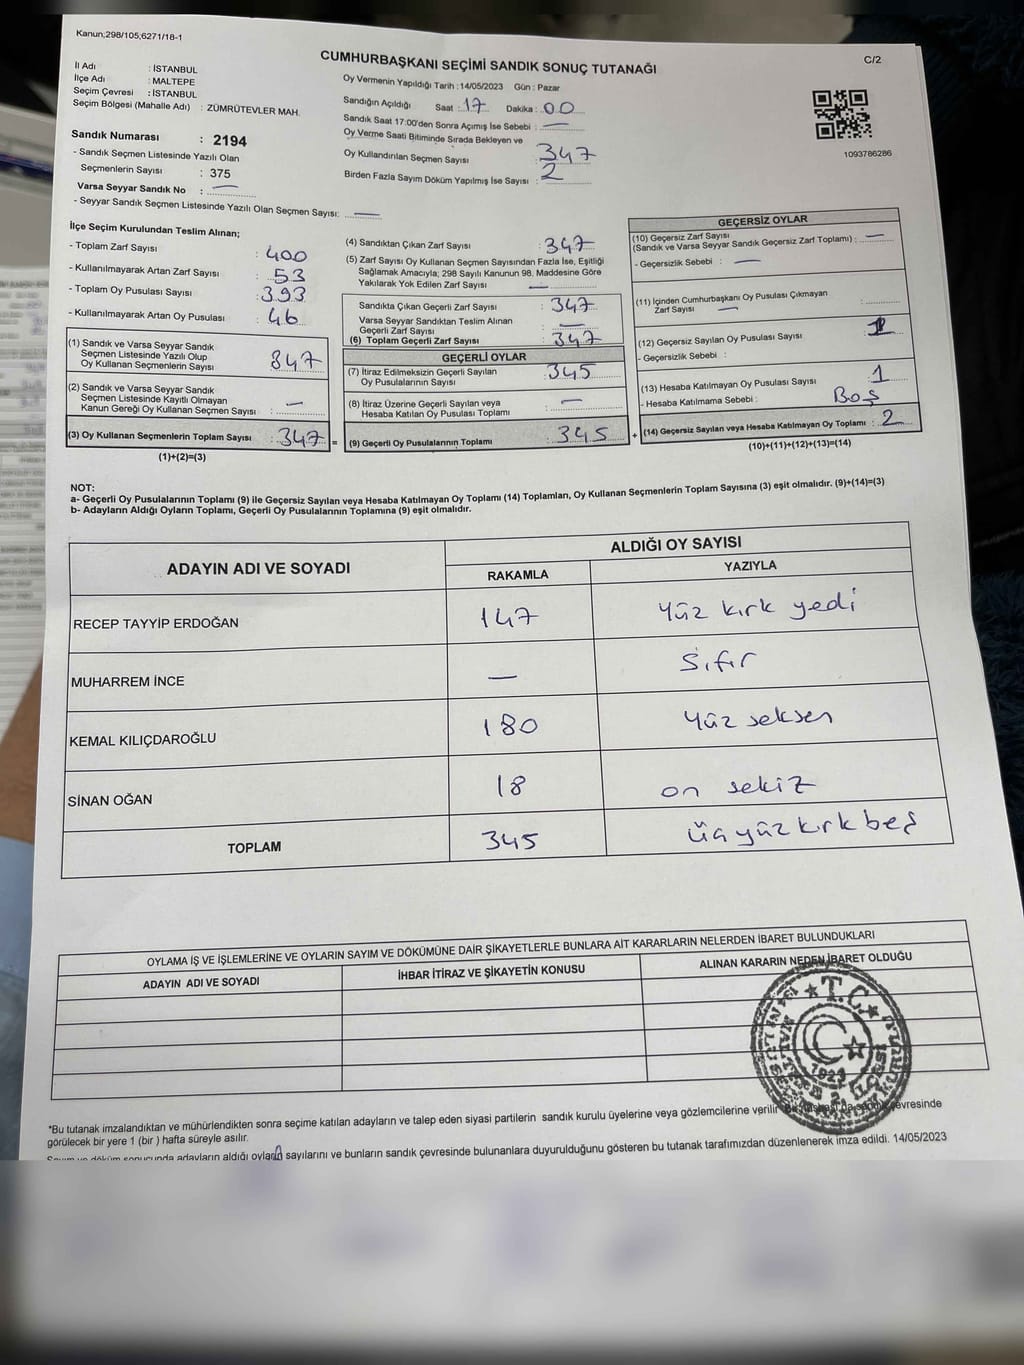 Kanun;298/105,6271/18-1
C/2
CUMHURBAŞKANI SEÇİMİ SANDIK SONUÇ TUTANAĞI
İl Adı : İSTANBUL
İlçe Adı : MALTEPE
Seçim Çevresi : İSTANBUL
Seçim Bölgesi (Mahalle Adı) : ZÜMRÜTEVLER MAH.
Sandık Numarası : 2194
- Sandık Seçmen Listesinde Yazılı Olan
Seçmenlerin Sayısı : 375
Varsa Seyyar Sandık No : —
- Seyyar Sandık Seçmen Listesinde Yazılı Olan Seçmen Sayısı: —
Oy Vermenin Yapıldığı Tarih : 14/05/2023 Gün : Pazar
Sandığın Açıldığı Saat : 17 Dakika : 00
Sandık Saat 17:00'den Sonra Açımış İse Sebebi : —
Oy Verme Saati Bitiminde Sırada Bekleyen ve
Oy Kullandırılan Seçmen Sayısı : 347
Birden Fazla Sayım Döküm Yapılmış İse Sayısı : 2
1093786286
İlçe Seçim Kurulundan Teslim Alınan;
- Toplam Zarf Sayısı : 400
- Kullanılmayarak Artan Zarf Sayısı : 53
- Toplam Oy Pusulası Sayısı : 393
- Kullanılmayarak Artan Oy Pusulası : 46
(1) Sandık ve Varsa Seyyar Sandık
Seçmen Listesinde Yazılı Olup
Oy Kullanan Seçmenlerin Sayısı 347
(2) Sandık ve Varsa Seyyar Sandık
Seçmen Listesinde Kayıtlı Olmayan
Kanun Gereği Oy Kullanan Seçmen Sayısı : —
(3) Oy Kullanan Seçmenlerin Toplam Sayısı : 347 =
(1)+(2)=(3)
(4) Sandıktan Çıkan Zarf Sayısı : 347
(5) Zarf Sayısı Oy Kullanan Seçmen Sayısından Fazla İse, Eşitliği
Sağlamak Amacıyla; 298 Sayılı Kanunun 98. Maddesine Göre
Yakılarak Yok Edilen Zarf Sayısı : —
Sandıkta Çıkan Geçerli Zarf Sayısı : 347
Varsa Seyyar Sandıktan Teslim Alınan
Geçerli Zarf Sayısı : —
(6) Toplam Geçerli Zarf Sayısı : 347
GEÇERLİ OYLAR
(7) İtiraz Edilmeksizin Geçerli Sayılan
Oy Pusulalarının Sayısı : 345
(8) İtiraz Üzerine Geçerli Sayılan veya
Hesaba Katılan Oy Pusulası Toplamı : —
(9) Geçerli Oy Pusulalarının Toplamı : 345 +
GEÇERSİZ OYLAR
(10) Geçersiz Zarf Sayısı
(Sandık ve Varsa Seyyar Sandık Geçersiz Zarf Toplamı) : —
- Geçersizlik Sebebi : —
(11) İçinden Cumhurbaşkanı Oy Pusulası Çıkmayan
Zarf Sayısı : —
(12) Geçersiz Sayılan Oy Pusulası Sayısı : 1
- Geçersizlik Sebebi :
(13) Hesaba Katılmayan Oy Pusulası Sayısı : 1
- Hesaba Katılmama Sebebi : Boş
(14) Geçersiz Sayılan veya Hesaba Katılmayan Oy Toplamı : 2
(10)+(11)+(12)+(13)=(14)
NOT:
a- Geçerli Oy Pusulalarının Toplamı (9) ile Geçersiz Sayılan veya Hesaba Katılmayan Oy Toplamı (14) Toplamları, Oy Kullanan Seçmenlerin Toplam Sayısına (3) eşit olmalıdır. (9)+(14)=(3)
b- Adayların Aldığı Oyların Toplamı, Geçerli Oy Pusulalarının Toplamına (9) eşit olmalıdır.
ADAYIN ADI VE SOYADI
ALDIĞI OY SAYISI
RAKAMLA YAZIYLA
RECEP TAYYİP ERDOĞAN 147 yüz kırk yedi
MUHARREM İNCE — Sıfır
KEMAL KILIÇDAROĞLU 180 yüz seksen
SİNAN OĞAN 18 on sekiz
TOPLAM 345 üçyüzkırkbeş
OYLAMA İŞ VE İŞLEMLERİNE VE OYLARIN SAYIM VE DÖKÜMÜNE DAİR ŞİKAYETLERLE BUNLARA AİT KARARLARIN NELERDEN İBARET BULUNDUKLARI
ADAYIN ADI VE SOYADI İHBAR İTİRAZ VE ŞİKAYETİN KONUSU ALINAN KARARIN NEDEN İBARET OLDUĞU
T.C.
1923
*Bu tutanak imzalandıktan ve mühürlendikten sonra seçime katılan adayların ve talep eden siyasi partilerin sandık kurulu üyelerine veya gözlemcilerine verilir. çevresinde
görülecek bir yere 1 (bir ) hafta süreyle asılır.
Sayım ve döküm sonucunda adayların aldığı oyların sayılarını ve bunların sandık çevresinde bulunanlara duyurulduğunu gösteren bu tutanak tarafımızdan düzenlenerek imza edildi. 14/05/2023